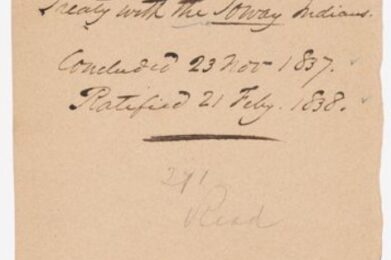 Treaty with the Ioway Indians.
Concluded 23 Nov 1837.
Ratified 21 Feby. 1838.
Read